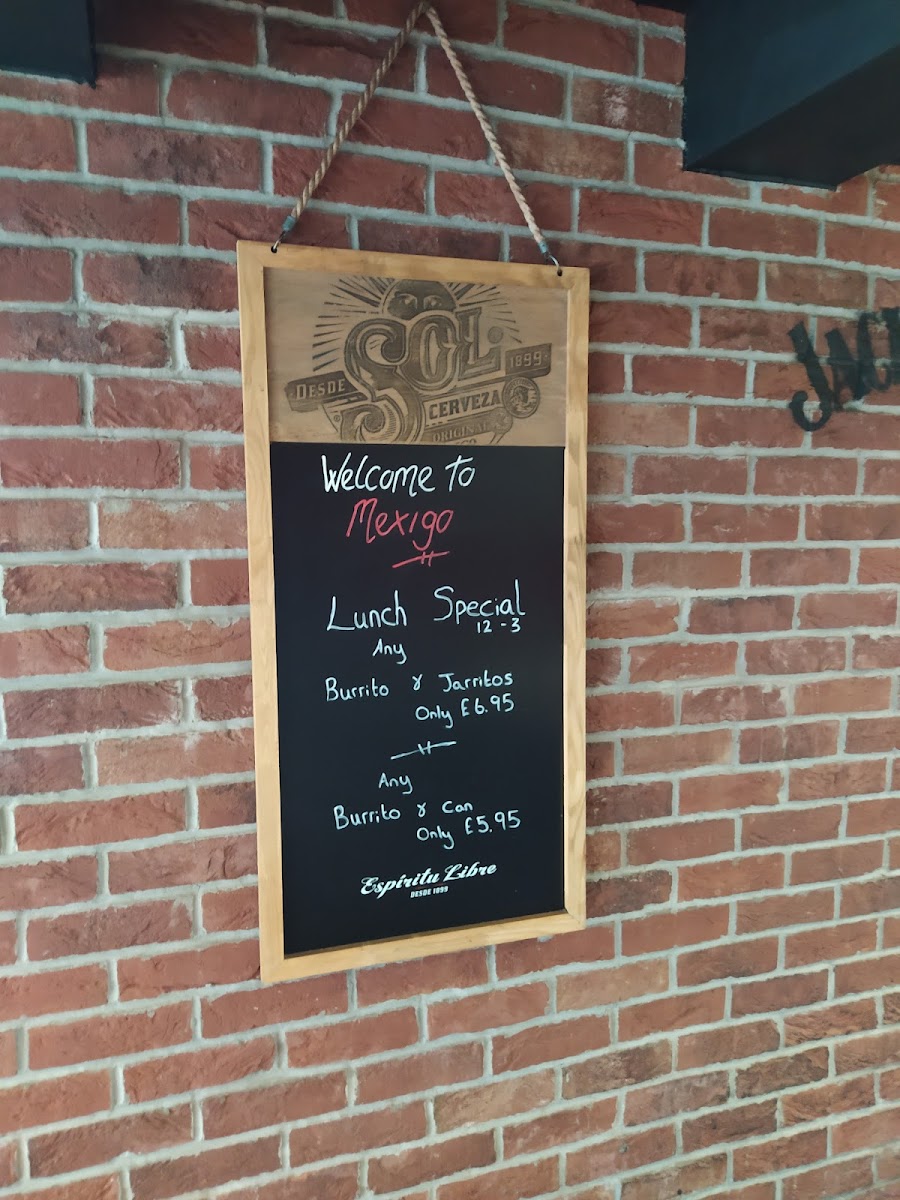 SOL
DESDE
1899
CERVEZA
ORIGINAL
Welcome to
Mexigo
Lunch Special
12 - 3
Any
Burrito & Jarritos
Only £6.95
Any
Burrito & Can
Only £5.95
Espíritu Libre
DESDE 1899